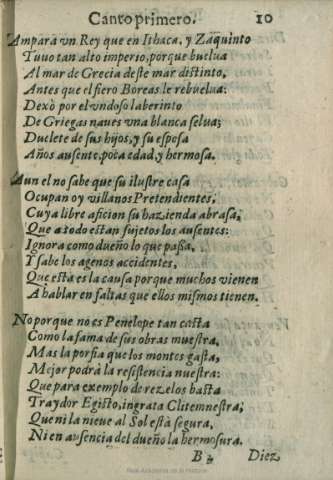 Canto primero. 10
Ampara vn Rey que en Ithaca, y Zaquinto
Tuuo tan alto imperio, porque buelua
Al mar de Grecia deste mar distinto,
Antes que el fiero Boreas le rebuelua:
Dexò por el vndoso laberinto
De Griegas naues vna blanca selua;
Duelete de sus hijos, y su esposa
Años ausente, poca edad, y hermosa.
Aun el no sabe que su ilustre casa
Ocupan oy villanos Pretendientes,
Cuya libre aficion su hazienda abrasa,
Que a todo estan sujetos los ausentes:
Ignora como dueño lo que passa,
Y sabe los agenos accidentes,
Que esta es la causa porque muchos vienen
A hablar en faltas que ellos mismos tienen.
No porque no es Penelope tan casta
Como la fama de sus obras muestra,
Mas la porfia que los montes gasta,
Mejor podrà la resistencia nuestra:
Que para exemplo de rezelos basta
Traydor Egisto, ingrata Clitemnestra;
Que ni la nieue al Sol està segura,
Ni en ausencia del dueño la hermosura.
B 2 Diez
Real Academia de la Historia